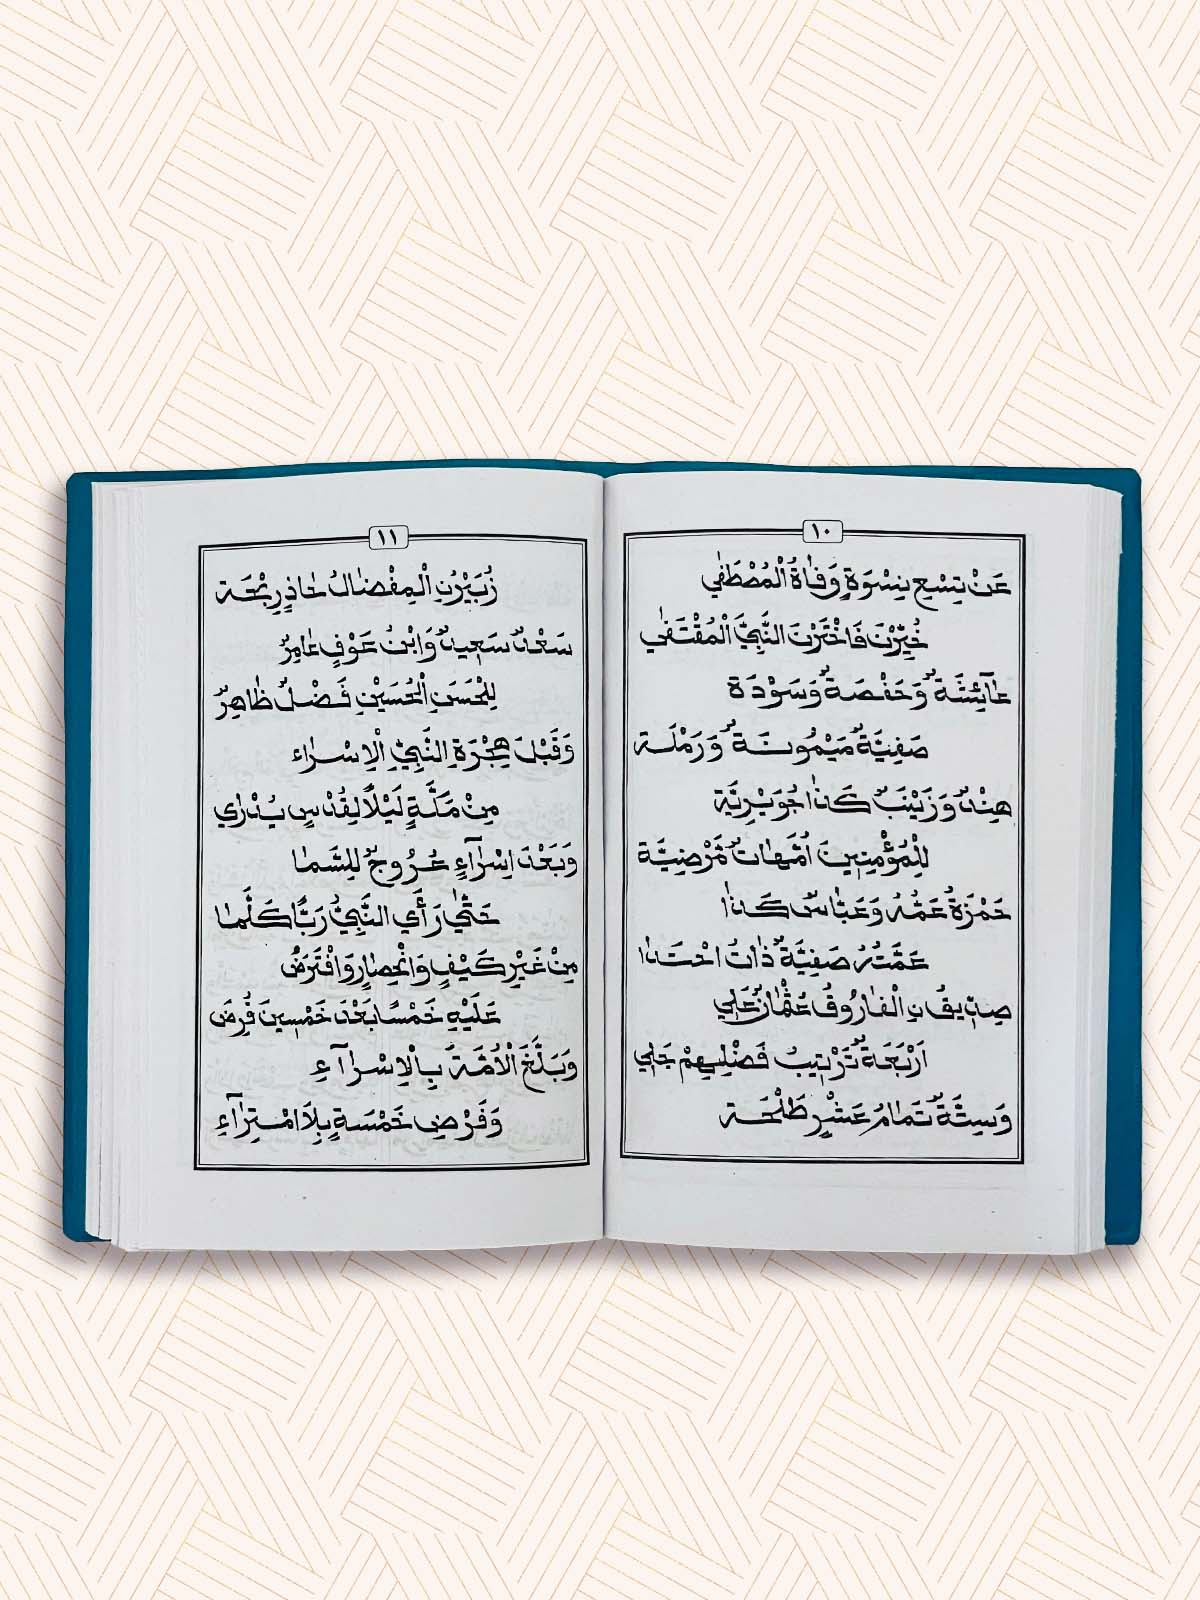 ١٠
عَنْ تِسْعِ نِسْوَةٍ وَفَاةُ الْمُصْطَفٰى
خُيِّرْنَ فَاخْتَرْنَ النَّبِيَّ الْمُقْتَفٰى
عَآئِشَةٌ وَحَفْصَةٌ وَسَوْدَةُ
صَفِيَّةٌ مَيْمُونَةٌ وَرَمْلَةُ
هِنْدٌ وَزَيْنَبٌ كَذَا جُوَيْرِيَّةُ
لِلْمُؤْمِنِينَ اُمَّهَاتٌ مَّرْضِيَّةُ
حَمْزَةُ عَمُّهُ وَعَبَّاسٌ كَذَا
عَمَّتُهُ صَفِيَّةٌ ذَاتُ احْتِذَا
صِدِّيقُنِ الْفَارُوقُ عُثْمَانٌ عَلِي
اَرْبَعَةٌ تَرْتِيبُ فَضْلِهِمْ جَلِي
وَسِتَّةٌ تَمَامُ عَشْرٍ طَلْحَةُ
١١
زُبَيْرُنِ الْمِفْضَالُ حَاذِرٍ بْحَةُ
سَعْدٌ سَعِيدٌ وَابْنُ عَوْفٍ عَامِرٌ
لِلْحَسَنِ الْحُسَيْنِ فَضْلٌ ظَاهِرٌ
وَقَبْلَ هِجْرَةِ النَّبِيِّ الْاِسْرَاء
مِنْ مَكَّةٍ لَيْلًا لِقُدْسٍ يُدْرٰى
وَبَعْدَ اِسْرَآءٍ عُرُوجٌ لِلسَّمَا
حَتّٰى رَأَى النَّبِيُّ رَبًّا كَلَّمَا
مِنْ غَيْرِ كَيْفٍ وَانْحِصَارٍ وَافْتَرَضْ
عَلَيْهِ خَمْسًا بَعْدَ خَمْسِينَ فُرِضَ
وَبَلَّغَ الْاُمَّةَ بِالْاِسْرَآءِ
وَفَرْضِ خَمْسَةٍ بِلَا امْتِرَآءِ